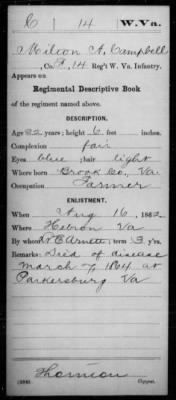 C | 14 | W. Va.
Milton A. Campbell
, Co. F, 14 Reg't W. Va. Infantry.
Appears on
Regimental Descriptive Book
of the regiment named above.
DESCRIPTION.
Age 22 years; height 6 feet inches.
Complexion fair
Eyes blue; hair light
Where born Brook Co., Va.
Occupation Farmer
ENLISTMENT.
When Aug 16, 1862
Where Hebron Va
By whom term 3 y'rs.
Remarks: Died of disease
March 7 1864 at
Parkersburg Va
Copyist.